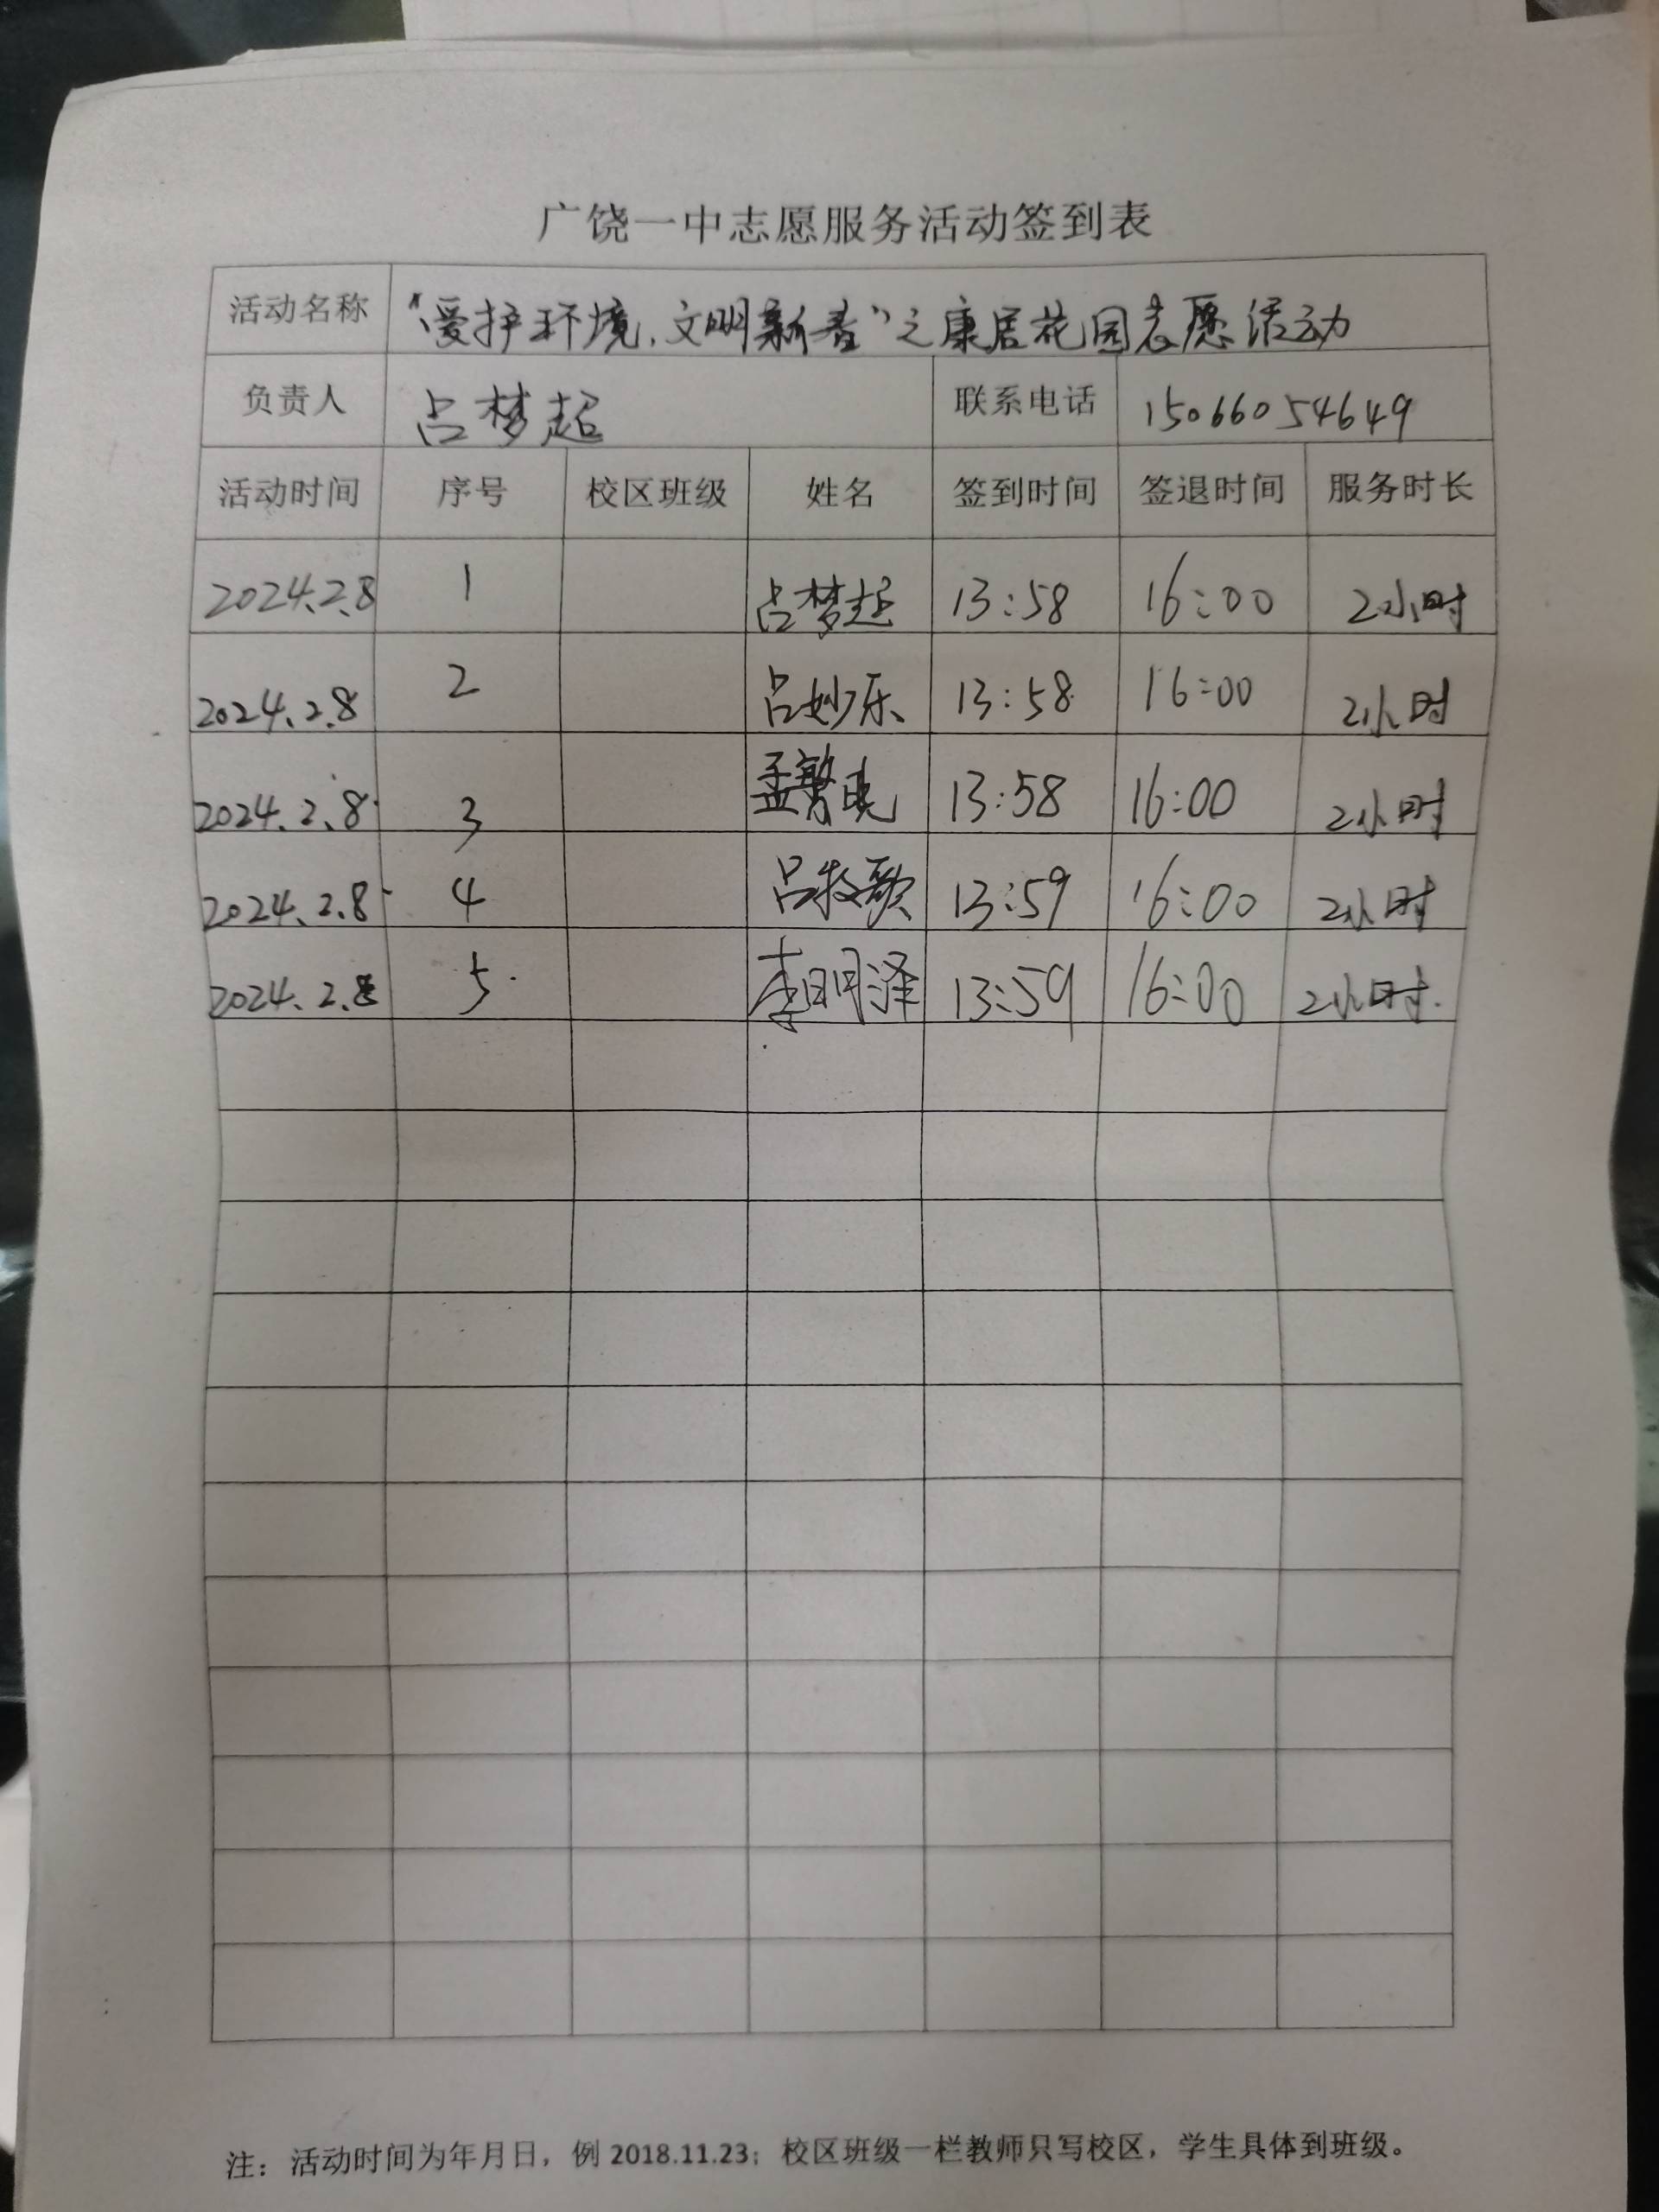 广饶一中志愿服务活动签到表
活动名称 “爱护环境、文明新春”之康居花园志愿活动
负责人 吕梦超 联系电话 15066054649
活动时间 序号 校区班级 姓名 签到时间 签退时间 服务时长
2024.2.8 1 吕梦超 13:58 16:00 2小时
2024.2.8 2 吕妙乐 13:58 16:00 2小时
2024.2.8 3 孟繁晓 13:58 16:00 2小时
2024.2.8 4 吕牧歌 13:59 16:00 2小时
2024.2.8 5 李明泽 13:59 16:00 2小时
注：活动时间为年月日，例 2018.11.23；校区班级一栏教师只写校区，学生具体到班级。